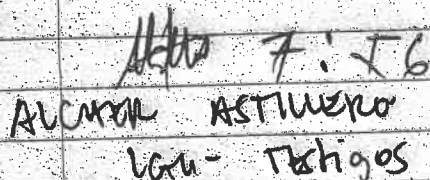 7:56
ALCHER ASTILLERO
LGU- Testigos